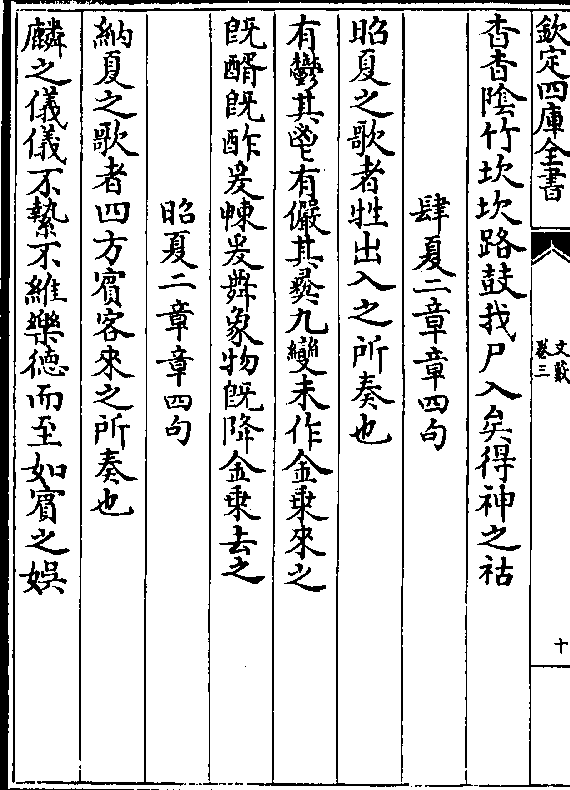 欽定四庫全書
文藪
卷三
十
杳杳陰竹坎坎路鼓我尸入矣得神之祜
肆夏二章章四句
昭夏之歌者牲出入之所奏也
有鬱其鬯有儼其彝九變未作金乗來之
既醑既酢爰朄爰舞象物既降金乗去之
昭夏二章章四句
納夏之歌者四方賓客來之所奏也
麟之儀儀不縶不維樂德而至如賓之娯